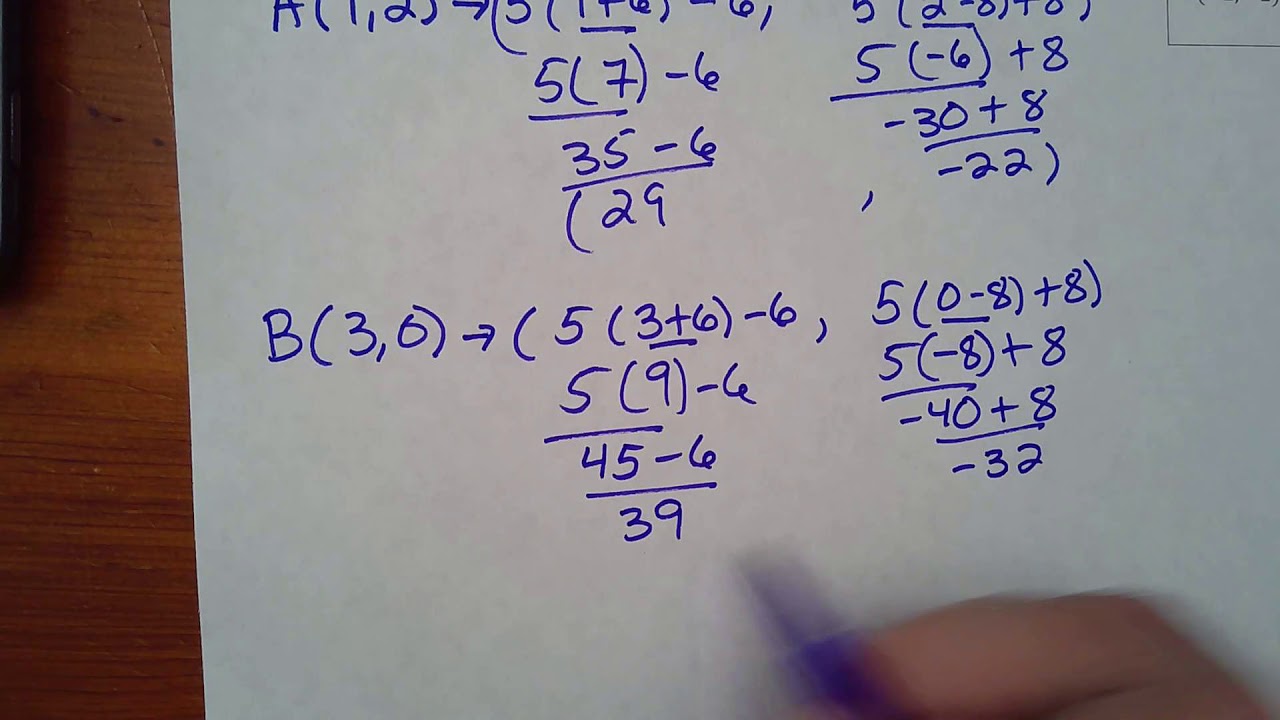 A(1,2)→(5(1+6)-6, 5(2-8)+8)
5(7)-6 5(-6)+8
35-6 -30+8
(29 , -22)
B(3,0)→(5(3+6)-6, 5(0-8)+8)
5(9)-6 5(-8)+8
45-6 -40+8
39 -32